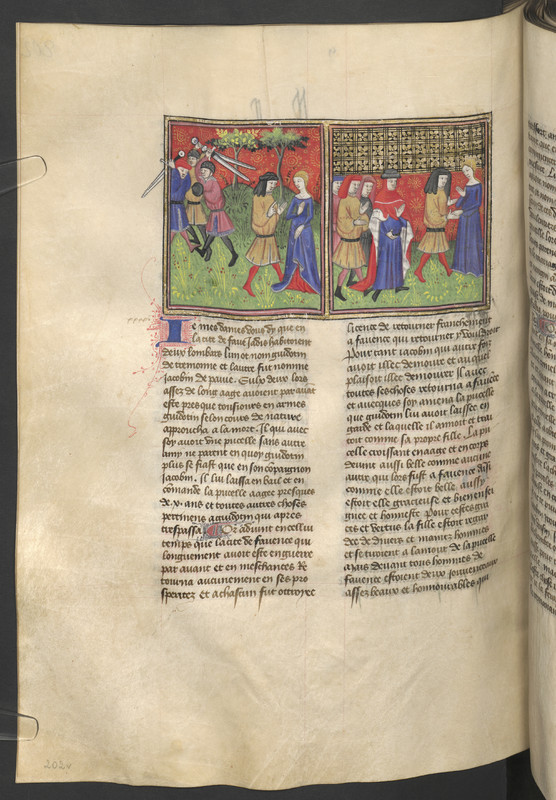 Je mes dames vous dy que en
la cite de fave jadis habitoient
deux lombars lun ot nom guidotin
de cremoine et lautre fut nomme
jacobin de pavie. Ces deux lors
assez de long aage avoient par avāt
este presque tousiours en armes
guidotin selon cours de nature
approucha a la mort. Il qui avec
soy avoit une pucelle sans autre
amy ne parent en quoy guidotin
plus se fiast que en son cōpaignon
jacobin. il lui laissa en bail et en
cōmande la pucelle aagee presques
de .x. ans et toutes autres choses
pertinens a guidotin qui apres
trespassa. Or advint en cellui
temps que la cite de favence qui
longuement avoit este en guerre
par avant et en meschances Re
tourna aucunement en ses pro
speritez Et a chascun fut ottroyee
licence de retourner franchement
a favence qui retourner y vouldroit
Pour tant jacobin qui autre foiz
avoit illec demoure et au quel
plaisoit illec demourer il avec
toutes ses choses retourna a favēce
et avecques soy amena la pucelle
que guidotin lui avoit laissee en
garde et la quelle il amoit et trai
toit comme sa propre fille. La pu
celle croissant en aage et en corps
devint aussi belle comme aucune
autre qui lors fust a favence Aīsi
comme elle estoit belle. aussy
estoit elle gracieuse et bien ensei
gnee et honneste. Pour cestes gra
ces et vertus la fille estoit regar
dee de divers et maintz hommes
et se tiroient a lamour de la pucelle
Mais devant tous hommes de
favence estoient deux jouvenceaux
assez beaux et honnourables qui
202v